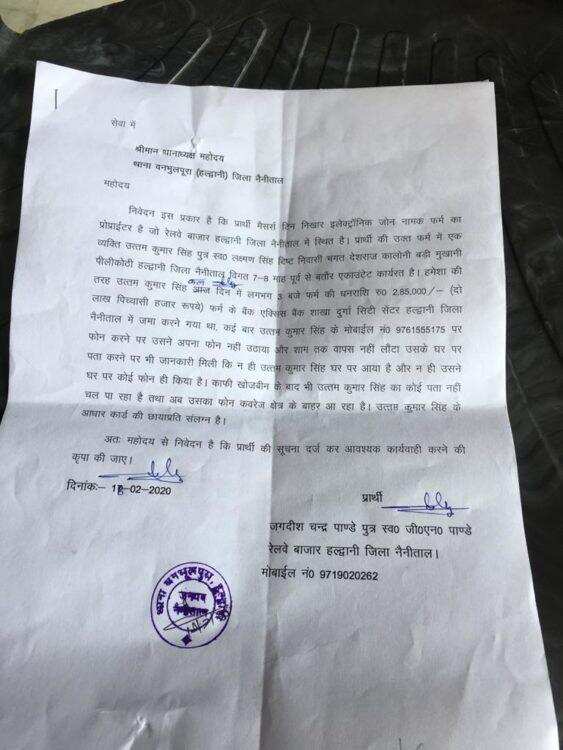 सेवा में
श्रीमान थानाध्यक्ष महोदय
थाना वनभुलपूरा (हल्द्वानी) जिला नैनीताल
महोदय
निवेदन इस प्रकार है कि प्रार्थी मैसर्स टिन निखार इलेक्ट्रॉनिक जोन नामक फर्म का
प्रोप्राईटर है जो रेलवे बाजार हल्द्वानी जिला नैनीताल में स्थित है। प्रार्थी की उक्त फर्म में एक
व्यक्ति उत्तम कुमार सिंह पुत्र स्व0 लक्ष्मण सिंह विष्ट निवासी चमत देशराज कालोनी बडी मुखानी
पीलीकोठी हल्द्वानी जिला नैनीताल विगत 7–8 माह पूर्व से बतौर एकाउटेंट कार्यरत है। हमेशा की
तरह उत्तम कुमार सिंह कल दिन में लगभग 3 बजे फर्म की धनराशि रू0 2,85,000/– (दो
लाख पिच्चासी हजार रूपये) फर्म के बैंक एक्सिस बैंक शाखा दुर्गा सिटी सेंटर हल्द्वानी जिला
नैनीताल में जमा करने गया था, कई बार उत्तम कुमार सिंह के मोबाईल नं0 9761555175 पर
फोन करने पर उसने अपना फोन नही उठाया और शाम तक वापस नहीं लौटा उसके घर पर
पता करने पर भी जानकारी मिली कि न ही उत्तम कुमार सिंह घर पर आया है और न ही उसने
घर पर कोई फोन ही किया है। काफी खोजबीन के बाद भी उत्तम कुमार सिंह का कोई पता नहीं
चल पा रहा है तथा अब उसका फोन कवरेज क्षेत्र के बाहर आ रहा है। उत्तम कुमार सिंह के
आधार कार्ड की छायाप्रति संलग्न है।
अतः महोदय से निवेदन है कि प्रार्थी की सूचना दर्ज कर आवश्यक कार्यवाही करने की
कृपा की जाए।
दिनांक:– 18–02–2020
प्रार्थी
जगदीश चन्द्र पाण्डे पुत्र स्व0 जी0एन0 पाण्डे
रेलवे बाजार हल्द्वानी जिला नैनीताल।
मोबाईल नं0 9719020262
थाना बनभूलपुरा, हल्द्वानी